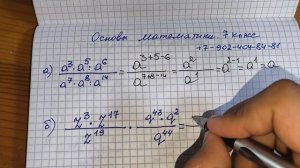 Основы математики. 7 класс
+7-902-404-84-81
а) (a³·a⁵·a⁶)/(a⁷·a⁸·a¹⁴) = a^(3+5-6)/a^(7+8-14) = a²/a¹ = a^(2-1) = a¹ = a
б) (z³·z¹⁷)/z¹⁹ · (q⁴³·q²)/q⁴⁴ =